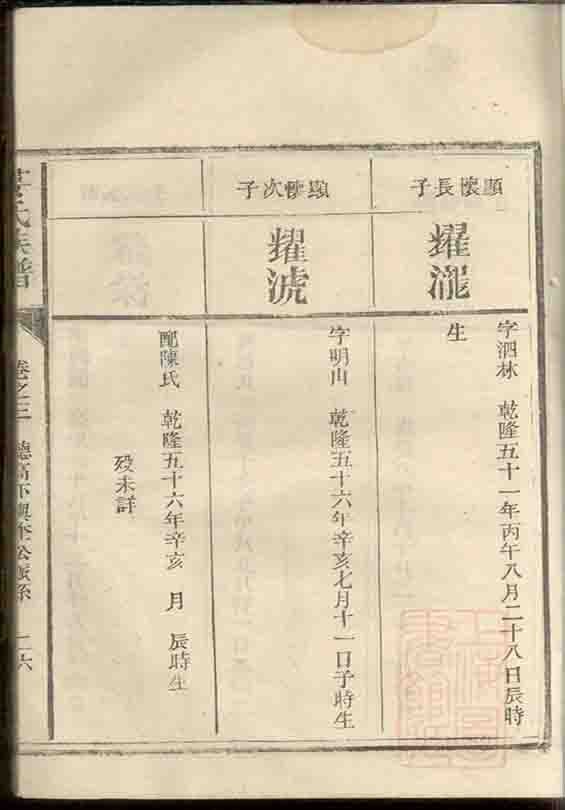 顯懷長子
耀瀧
字泗林 乾隆五十一年丙午八月二十八日辰時
生
顯懷次子
耀淲
字明山 乾隆五十六年辛亥七月十一日子時生
配陳氏 乾隆五十六年辛亥 月 辰時生
歿未詳
氏族譜
卷之三 德高 公 系 二六